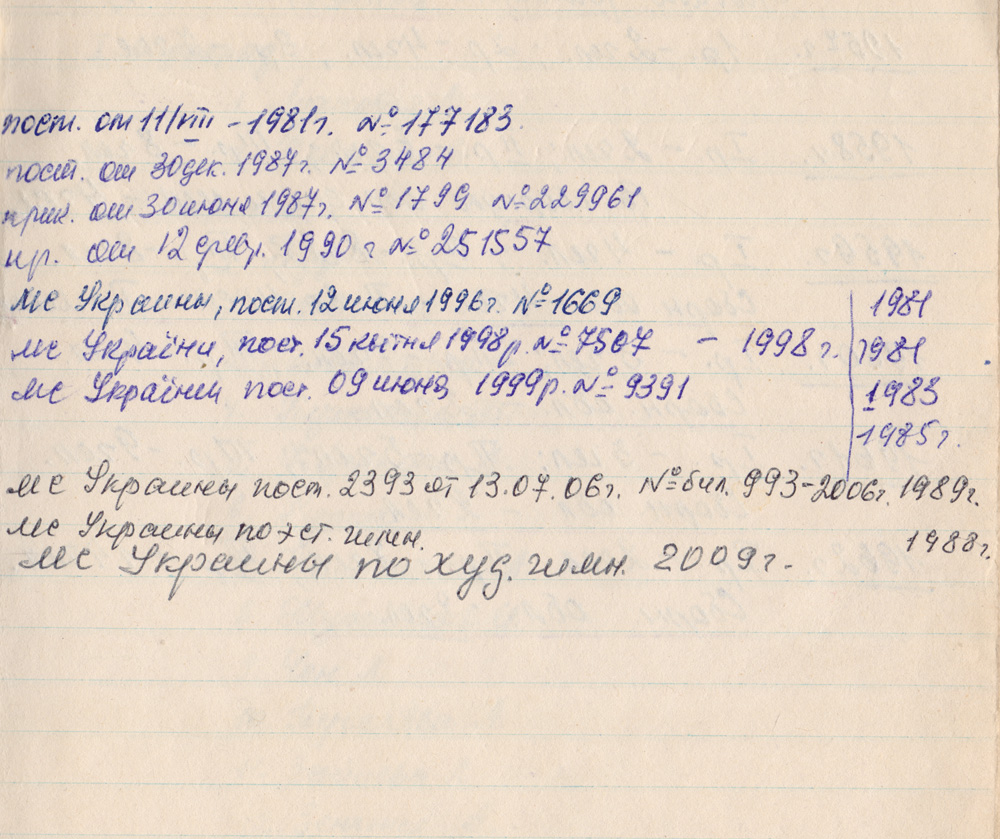 пост. от 11/VIII - 1981г. № 177183.
пост. от 30 дек. 1987г. № 3484
прик. от 30 июня 1987г. № 1799 № 229961
пр. от 12 февр. 1990 г № 251557
МС Украины, пост. 12 июня 1996г. № 1669 1981
МС України, пост. 15 квітня 1998р. № 7507 - 1998г. 1981
МС України пост. 09 июня 1999р. № 9391 1983
1985г.
МС Украины пост. 2393 от 13.07.06г. № бил. 993-2006г. 1989г.
МС Украины по эст. гимн. 1988г.
МС Украины по худ. гимн. 2009г.